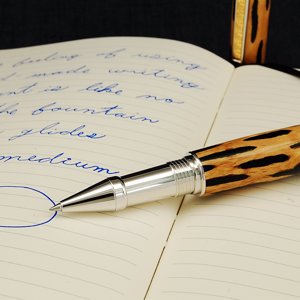 feeling of using
d made writing
nt is like no
the fountain
glides
medium